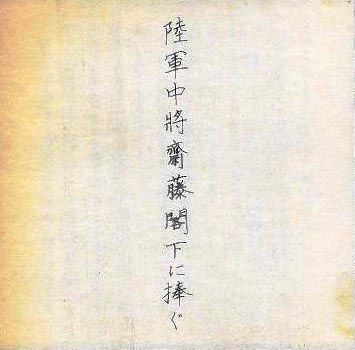 陸軍中將齋藤閣下に捧ぐ